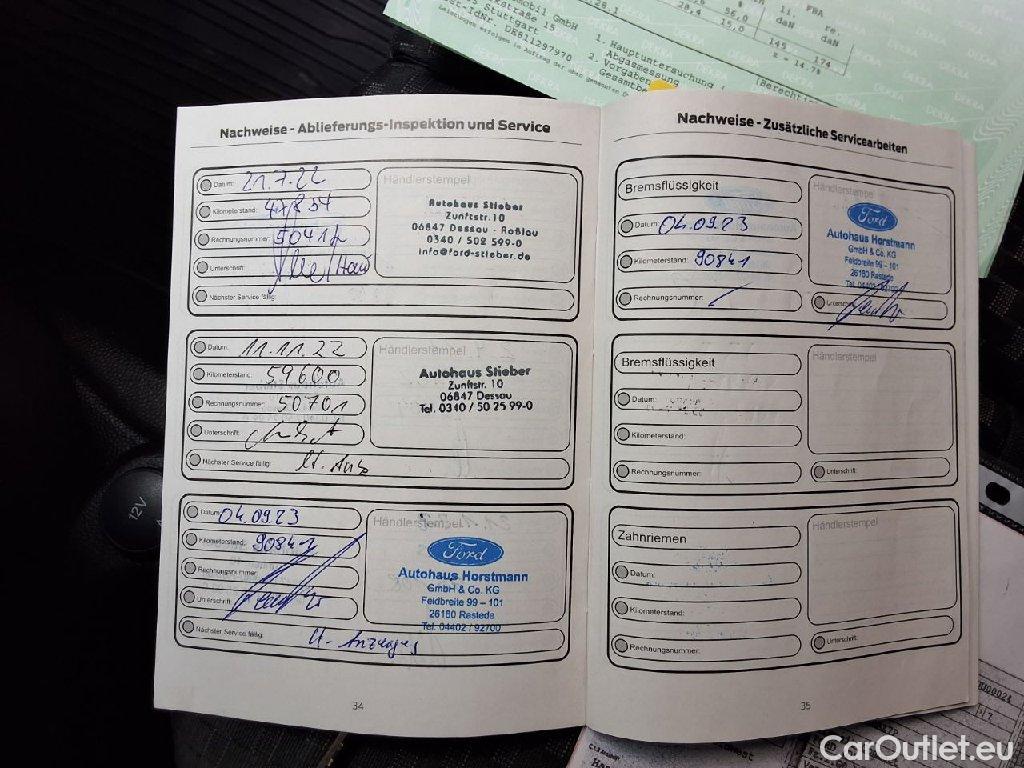 mobil GmbH
kstraße 15
Stuttgart
DE811297970
Leistungen erfolgen im Auftrag der oben genannten
1. Hauptuntersuchung
Abgasmessung
2. Vorgaben
Gesamtbe
28,4
15,0
FBA
daN
re.
daN
145
174
DEKRA
12V
Nachweise - Ablieferungs-Inspektion und Service
Datum: 21.7.22
Kilometerstand:
Rechnungsnummer:
Unterschrift:
Nächster Service fällig:
Händlerstempel
Autohaus Stieber
Zunftstr. 10
06847 Dessau - Roßlau
0340 / 502 599-0
info@ford-stieber.de
Datum: 11.11.22
Kilometerstand: 59600
Rechnungsnummer: 50701
Unterschrift:
Nächster Service fällig: lt. Anz
Händlerstempel
Autohaus Stieber
Zunftstr. 10
06847 Dessau
Tel. 0340 / 50 25 99-0
Datum: 04.09.23
Kilometerstand: 90841
Rechnungsnummer:
Unterschrift:
Nächster Service fällig: lt. Anzeige
Händlerstempel
Ford
Autohaus Horstmann
GmbH & Co. KG
Feldbreite 99 – 101
26180 Rastede
Tel. 04402 / 92700
34
Nachweise - Zusätzliche Servicearbeiten
Bremsflüssigkeit
Datum: 04.09.23
Kilometerstand: 90841
Rechnungsnummer:
Händlerstempel
Ford
Autohaus Horstmann
GmbH & Co. KG
Feldbreite 99 – 101
26180 Rastede
Tel. 04402 / 92700
Unterschrift:
Bremsflüssigkeit
Datum:
Kilometerstand:
Rechnungsnummer:
Händlerstempel
Unterschrift:
Zahnriemen
Datum:
Kilometerstand:
Rechnungsnummer:
Händlerstempel
Unterschrift:
35
CarOutlet.eu